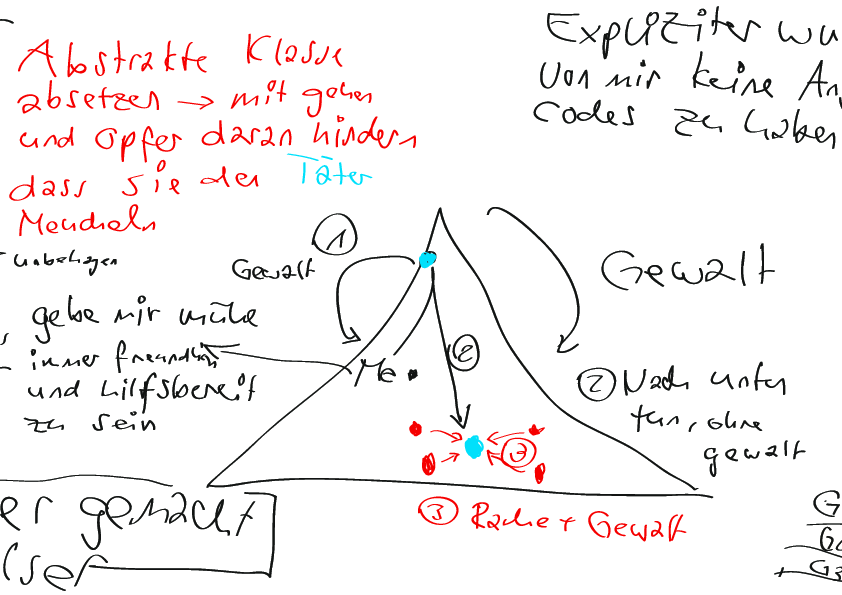 Abstrakte Klasse
absetzen → mit gehen
und Opfer daran hindern
dass sie den Täter
Meucheln
unbehagen
Expliziter wu
von mir keine An
codes zu haben
1
Gewalt
Gewalt
gebe mir mühe
immer freundlich
und hilfsbereit
zu sein
Me
2
2 Nach unten
tun, ohne
gewalt
3
3 Rache + Gewalt
er gemacht
G
G2
+ G3